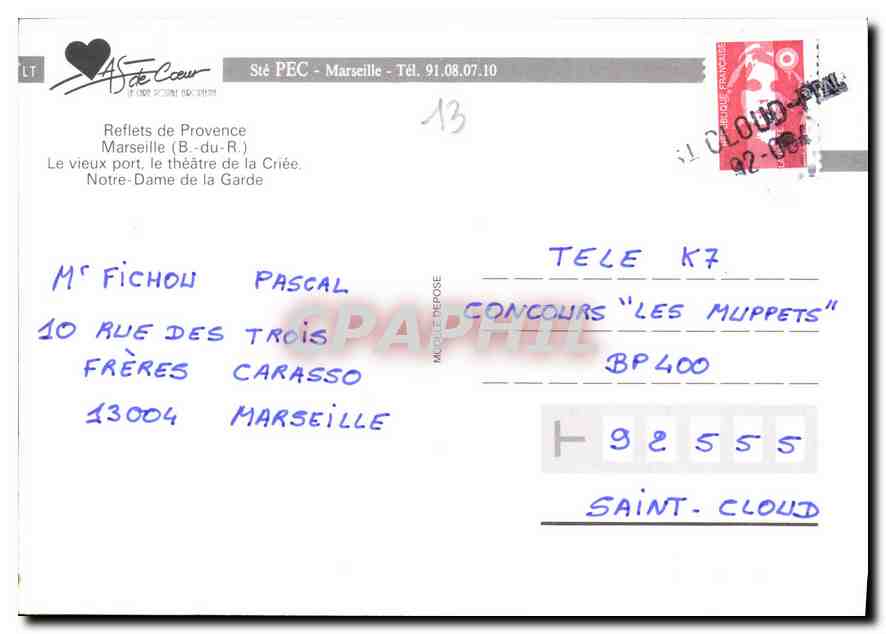 LT
As de Cœur
LA CARTE POSTALE EUROPÉENNE
Sté PEC - Marseille - Tél. 91.08.07.10
13
Reflets de Provence
Marseille (B.-du-R.)
Le vieux port, le théâtre de la Criée,
Notre-Dame de la Garde
RÉPUBLIQUE FRANÇAISE
CLOUD-PPAL
Mr FICHOU PASCAL
10 RUE DES TROIS
FRÈRES CARASSO
13004 MARSEILLE
MODELE DEPOSE
CPAPHIL
TELE K7
CONCOURS "LES MUPPETS"
BP 400
92555
SAINT-CLOUD